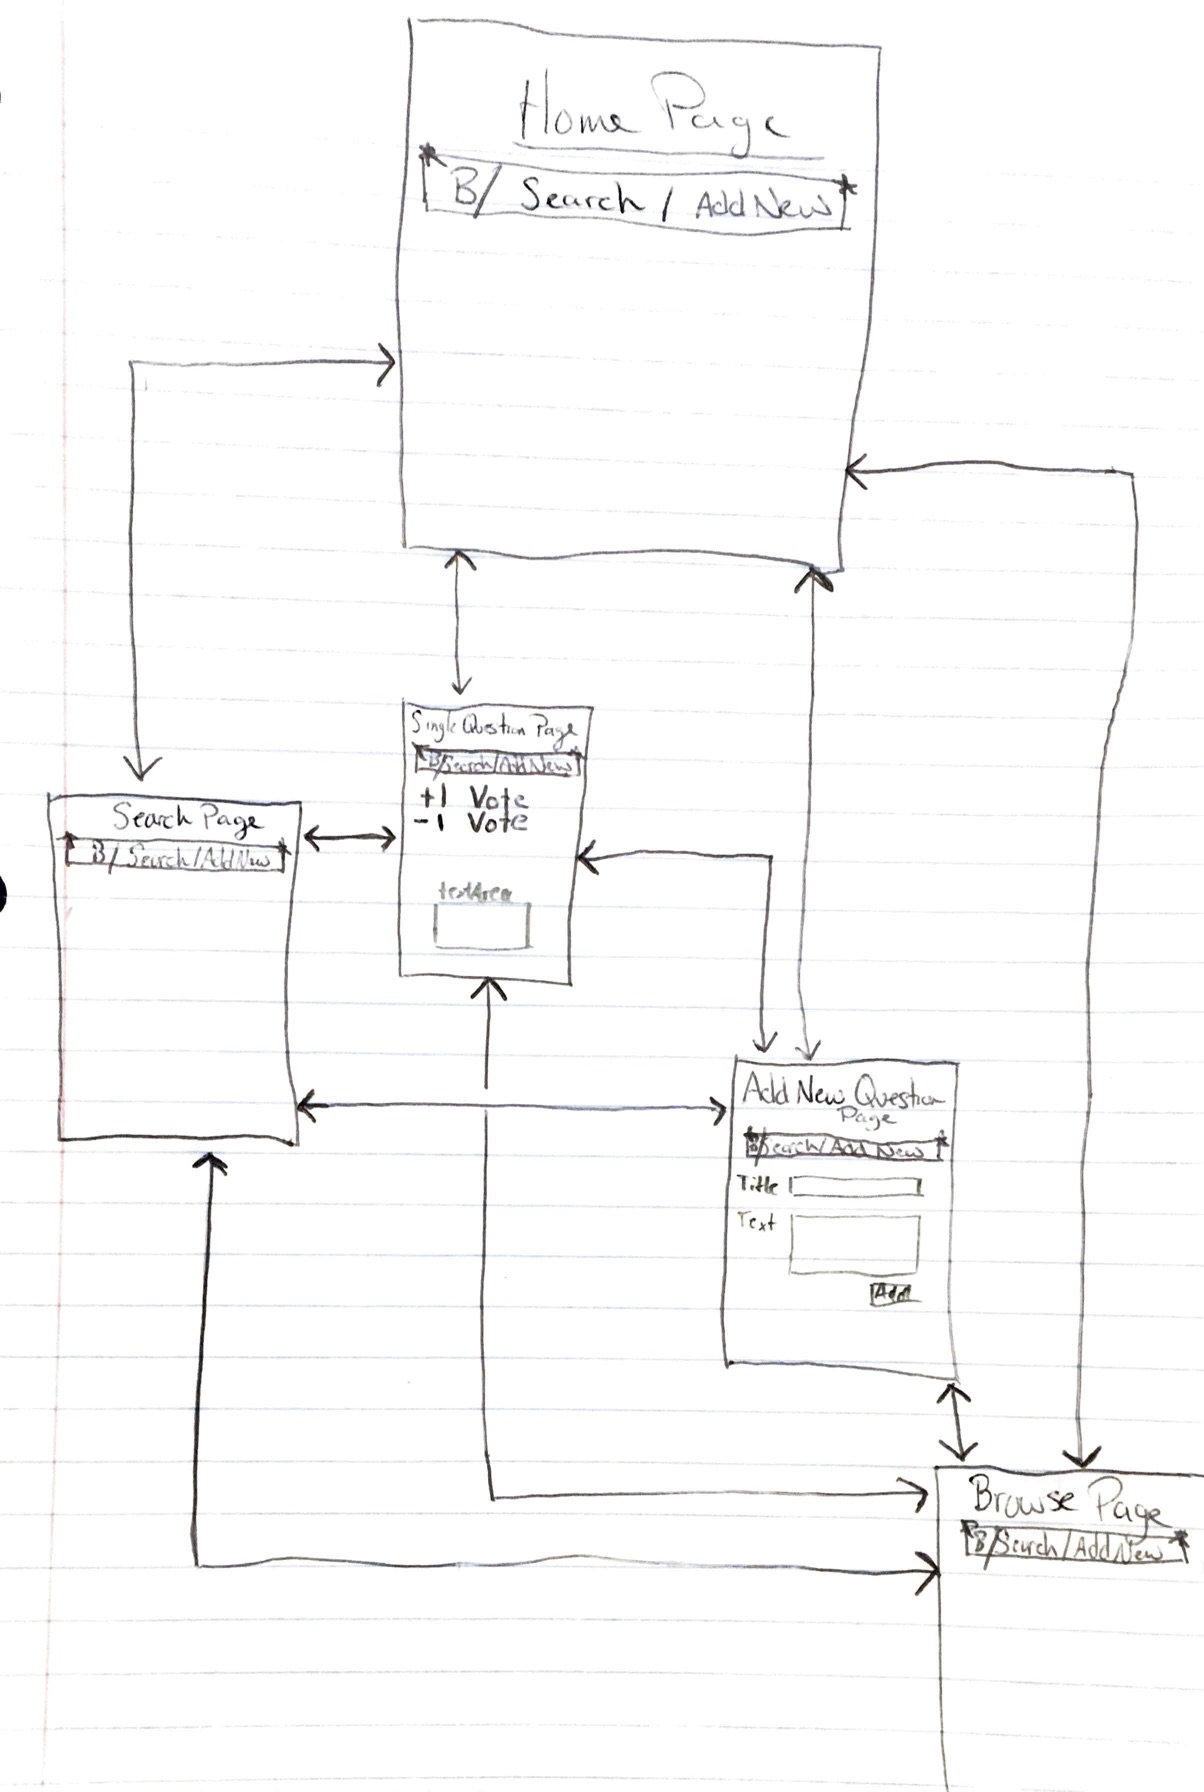 Home Page
B/ Search / Add New
Single Question Page
B/Search/Add New
+1 Vote
-1 Vote
textArea
Search Page
B/ Search/Add New
Add New Question
Page
B/Search/Add New
Title
Text
Add
Browse Page
B/Search/Add New